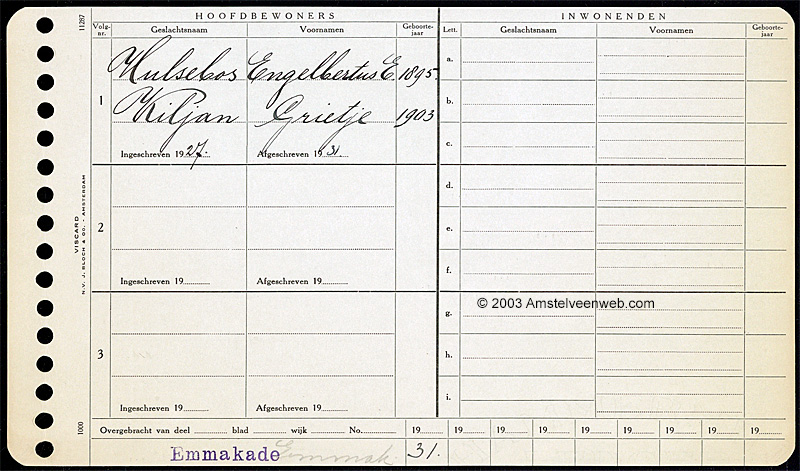 HOOFDBEWONERS
INWONENDEN
11287
Volg-nr.
Geslachtsnaam
Voornamen
Geboorte-jaar
Lett.
Geslachtsnaam
Voornamen
Geboorte-jaar
Hulsebos Engelbertus E. 1895.
1
Kiljan Grietje 1903
Ingeschreven 1927.
Afgeschreven 1931.
a.
b.
c.
2
Ingeschreven 19
Afgeschreven 19
d.
e.
f.
VISCARD
N.V. J. BLOCH & Co. - AMSTERDAM
3
Ingeschreven 19
Afgeschreven 19
g.
© 2003 Amstelveenweb.com
h.
i.
1000
Overgebracht van deel blad wijk No. 19 19 19 19 19 19 19 19 19
Emmakade Emmak. 31.